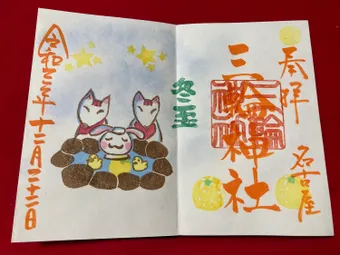 奉拝
名古屋
三輪神社
冬至
令和三年十二月二十二日